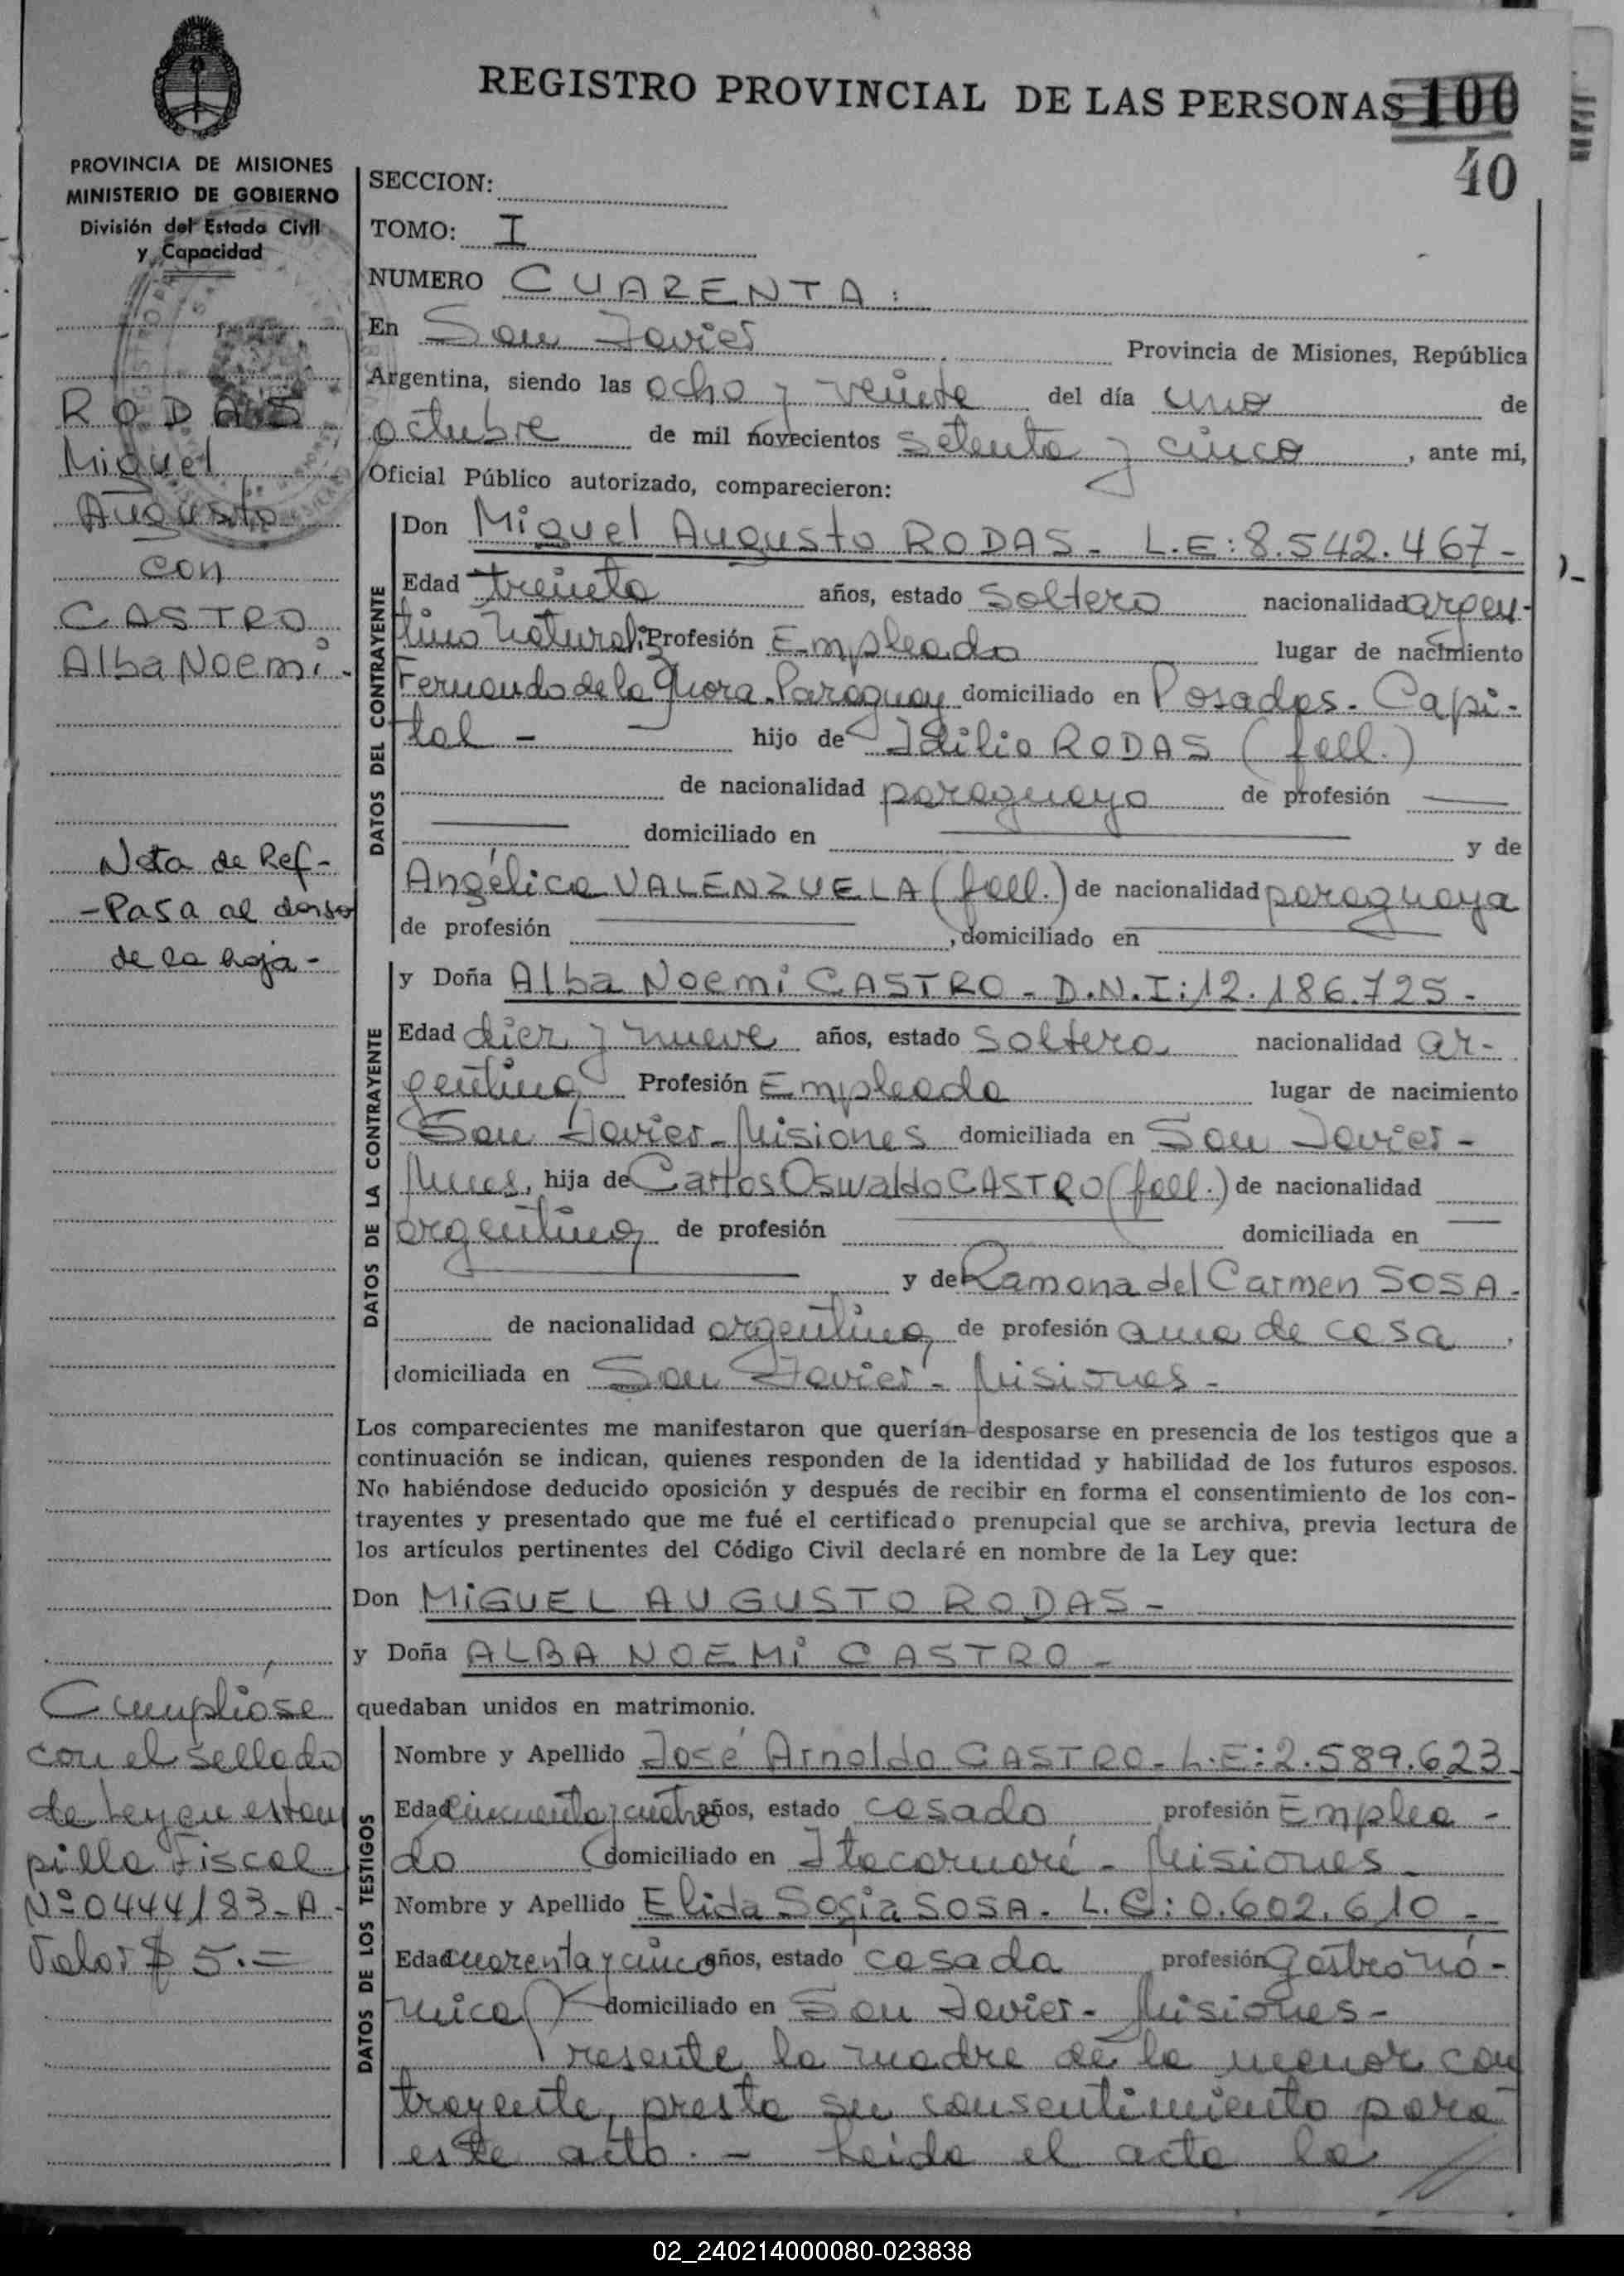 REGISTRO PROVINCIAL DE LAS PERSONAS 100
40
PROVINCIA DE MISIONES
MINISTERIO DE GOBIERNO
División del Estado Civil
y Capacidad
RODAS
Miguel
Augusto
con
CASTRO
Alba Noemi.-
Nota de Ref-
-Pasa al dorso
de la hoja-
Cumplióse
con el sellado
de Ley en estam
pilla Fiscal
Nº 0444183-A-
Valor $ 5.=
SECCION:
TOMO: I
NUMERO CUARENTA:
En San Javier Provincia de Misiones, República
Argentina, siendo las ocho y veinte del día uno de
octubre de mil novecientos setenta y cinco, ante mi,
Oficial Público autorizado, comparecieron:
DATOS DEL CONTRAYENTE
Don Miguel Augusto RODAS- L.E:8.542.467-
Edad treinta años, estado soltero nacionalidad argen-
tino Profesión Empleado lugar de nacimiento
Fernando de la Mora. Paraguay domiciliado en Posadas- Capi-
tal - hijo de Idilio RODAS (fall.)
de nacionalidad paraguayo de profesión
domiciliado en y de
Angélica VALENZUELA (fall.) de nacionalidad paraguaya
de profesión , domiciliado en
DATOS DE LA CONTRAYENTE
y Doña Alba Noemi CASTRO- D.N.I:12.186.725-
Edad diez y nueve años, estado soltera nacionalidad ar-
gentina Profesión Empleada lugar de nacimiento
San Javier-Misiones domiciliada en San Javier-
Mnes, hija de Carlos Oswaldo CASTRO (fall.) de nacionalidad
argentina de profesión domiciliada en
y de Ramona del Carmen SOSA-
de nacionalidad argentina, de profesión ama de casa,
domiciliada en San Javier- Misiones-
Los comparecientes me manifestaron que querían desposarse en presencia de los testigos que a
continuación se indican, quienes responden de la identidad y habilidad de los futuros esposos.
No habiéndose deducido oposición y después de recibir en forma el consentimiento de los con-
trayentes y presentado que me fué el certificado prenupcial que se archiva, previa lectura de
los artículos pertinentes del Código Civil declaré en nombre de la Ley que:
Don MiGUEL AUGUSTO RODAS-
y Doña ALBA NOEMi CASTRO-
quedaban unidos en matrimonio.
DATOS DE LOS TESTIGOS
Nombre y Apellido José Arnoldo CASTRO- L.E:2.589.623
Edad cincuenta y cuatro años, estado casado profesión Emplea-
do domiciliado en Itacaruaré- Misiones-
Nombre y Apellido Elida SOSA- L.C:0.602.610-
Edad cuarenta y cinco años, estado casada profesión gastronó-
mica domiciliado en San Javier- Misiones-
Presente la madre de la menor con
trayente, presta su consentimiento para
este acto.- Leída el acta la
02_240214000080-023838